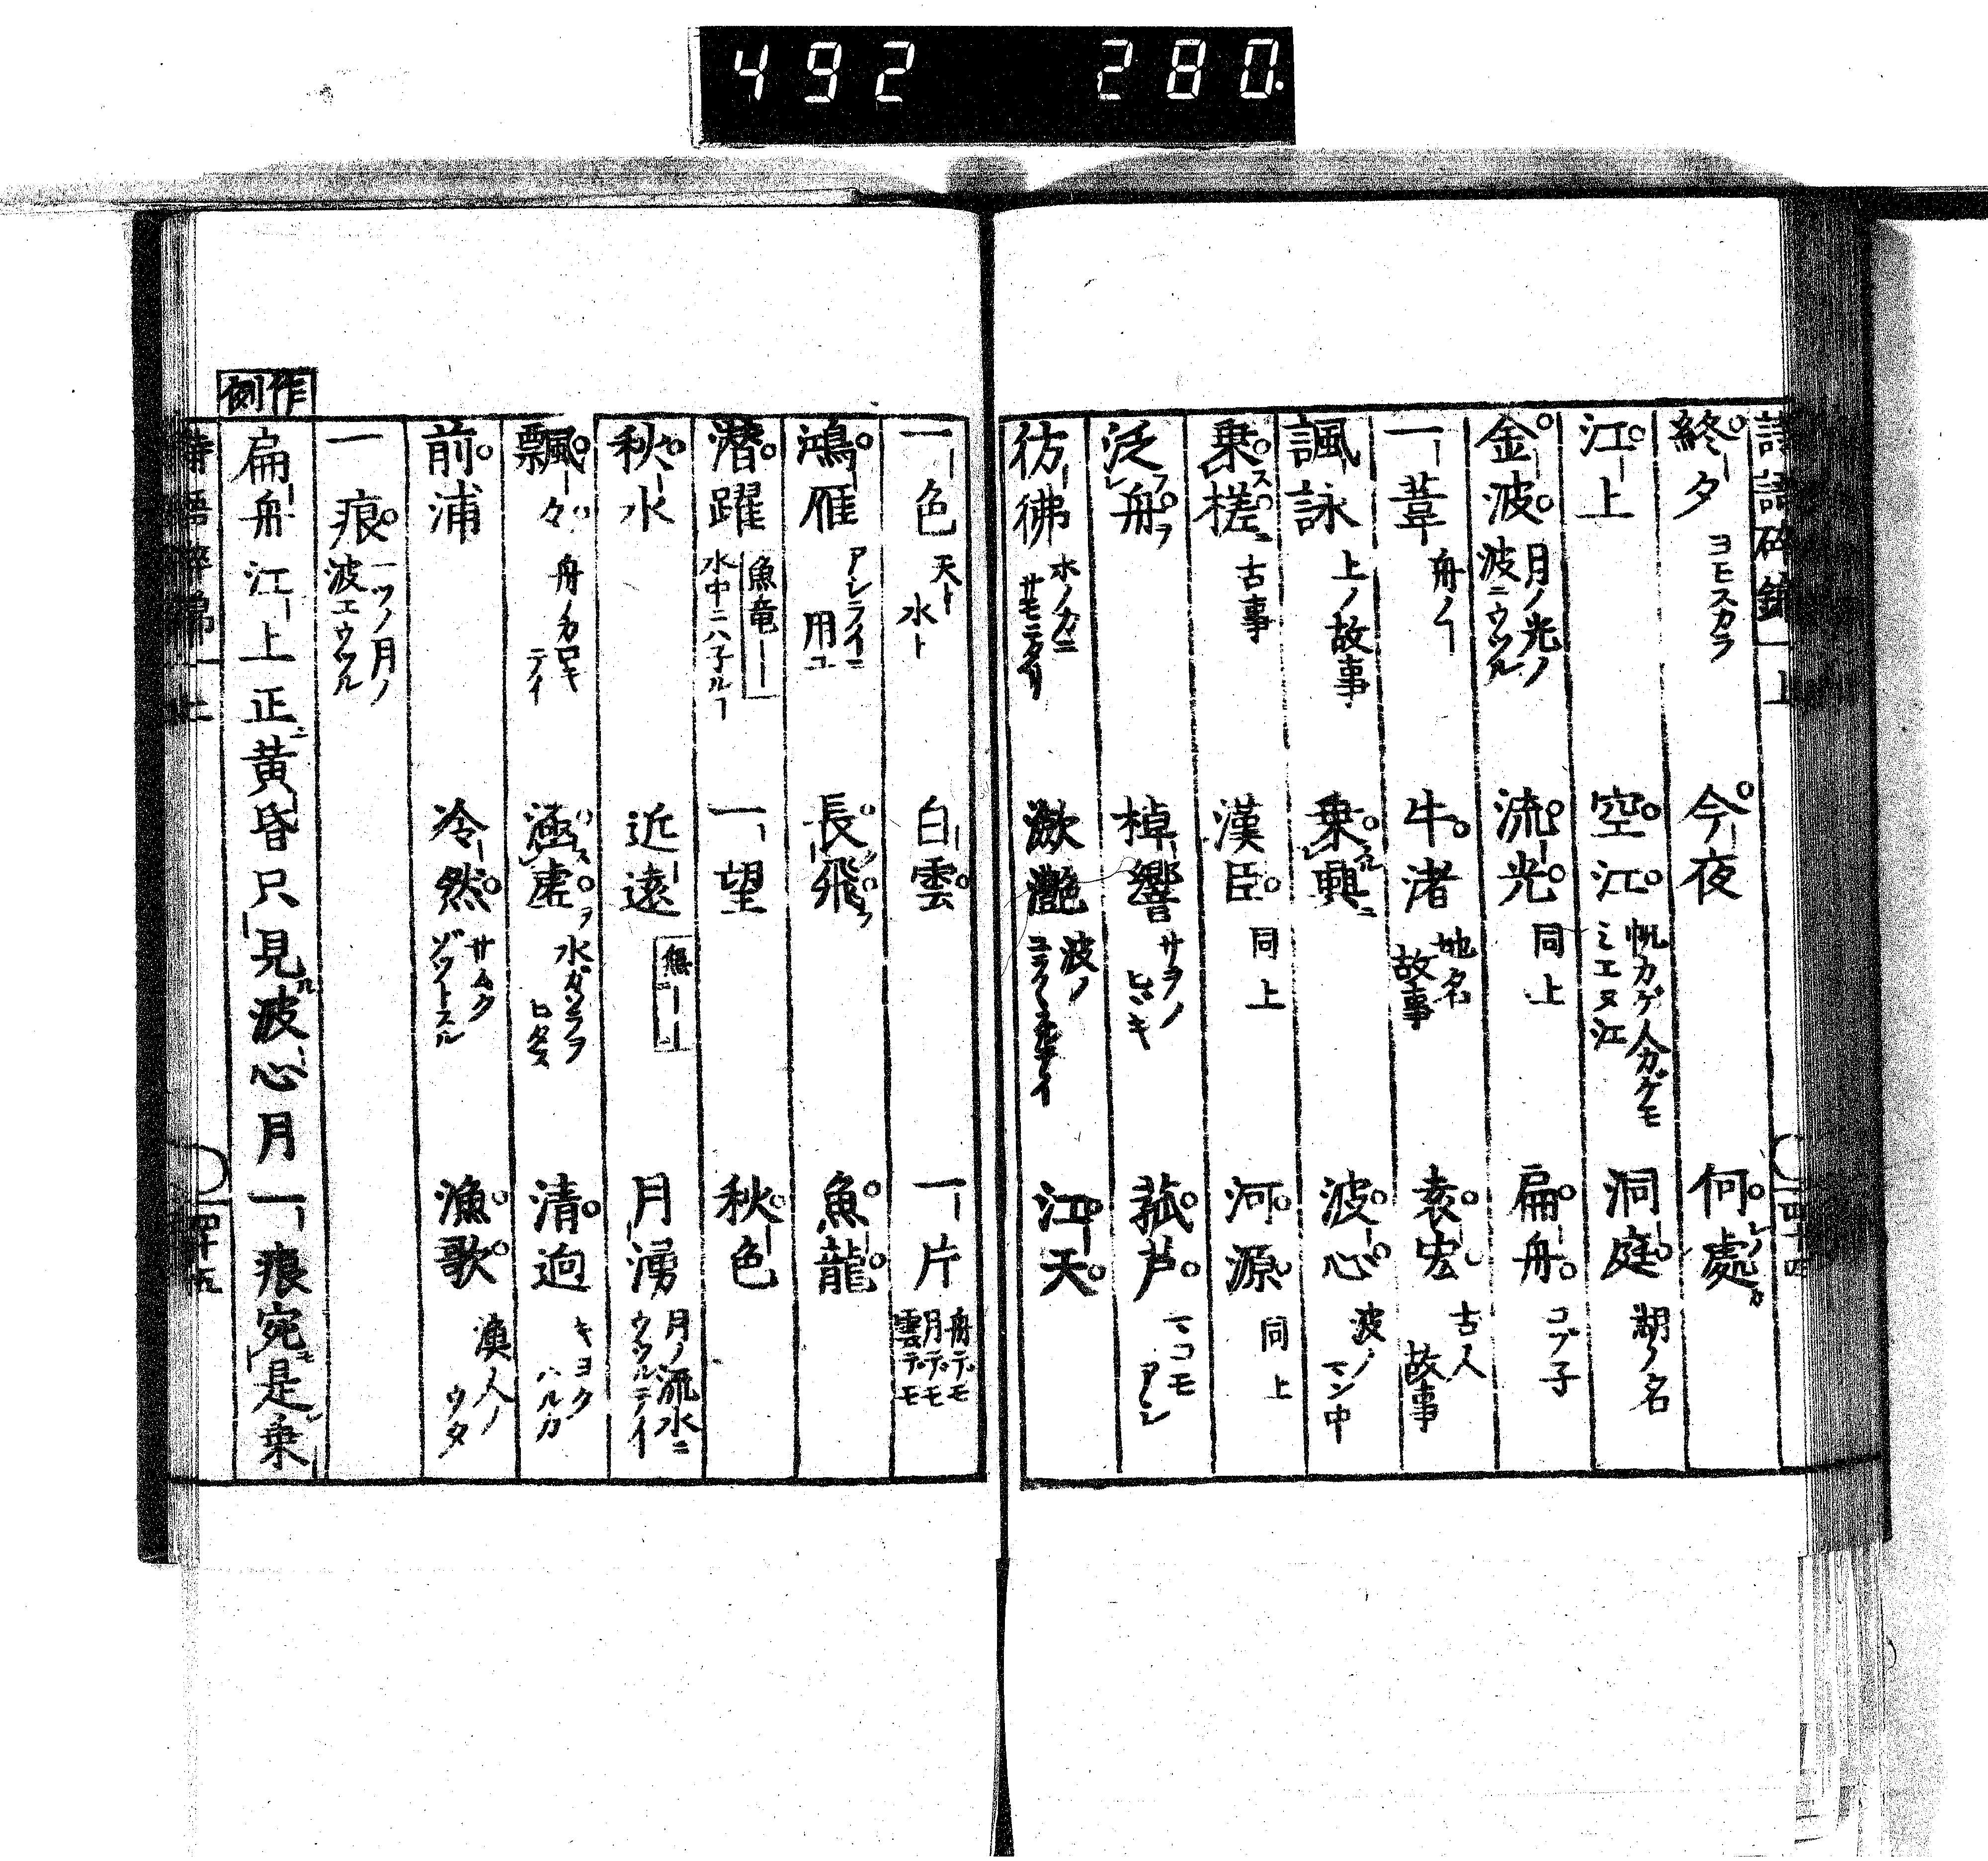 492 280.
終夕 ヨモスカラ 今夜 何處
江上 空江 帆カゲ人カゲモミエヌ江 洞庭 湖ノ名
金波 月ノ光ノ波ニウツル 流光 同上 扁舟 コブ子
一葦 舟ノ 牛渚 地名故事 袁宏 古人故事
諷詠 上ノ故事 乗興 波心 波ノマン中
乗槎 古事 漢臣 同上 河源 同上
泛舟 棹響 サヲノヒヾキ 菰芦 マコモアシ
彷彿 瀲灧 波ノ 江天
一色 天ト水ト 白雲 一片 舟デモ月デモ雲デモ
鴻雁 用ユ 長飛 魚龍
潜躍 魚竜 水中ニハ子ル 一望 秋色
秋水 近遠 無 月湧 月ノ流水ニウツルテイ
飄々 舟ノカロキテイ 涵虚 水ガソラヲヒタス 清逈 キヨクハルカ
前浦 冷然 サムクゾツトスル 漁歌 漁人ノウタ
一痕 一ツノ月ノ波エウツル
作例
扁舟江上正黄昏只見波心月一痕宛是乗